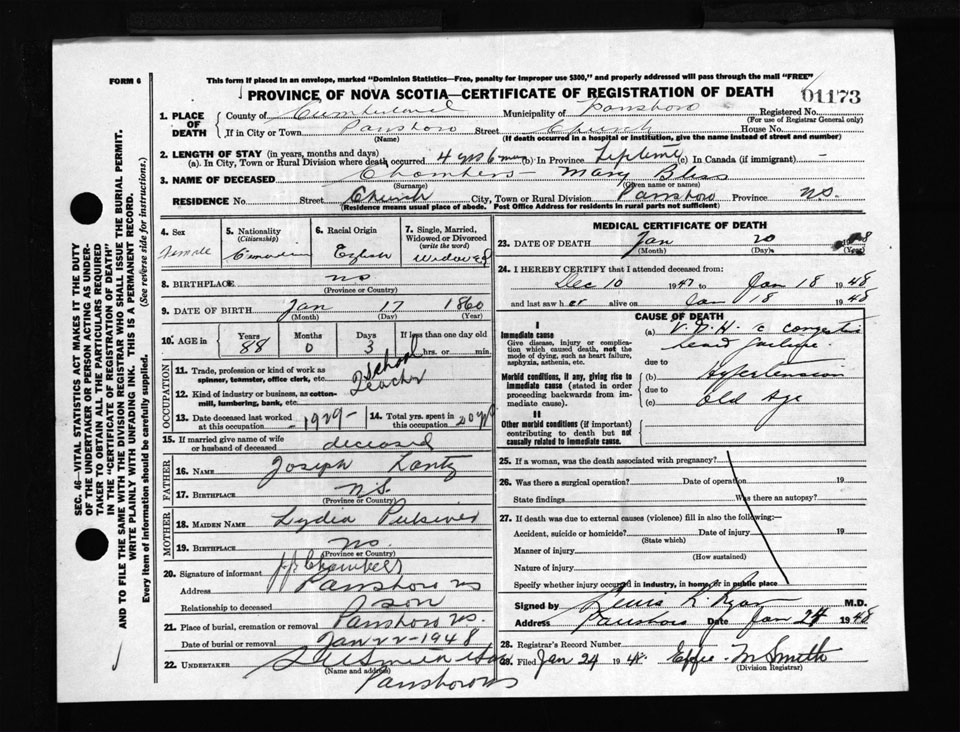 FORM 6
This form if placed in an envelope, marked "Dominion Statistics—Free, penalty for improper use $300," and properly addressed will pass through the mail "FREE"
PROVINCE OF NOVA SCOTIA—CERTIFICATE OF REGISTRATION OF DEATH
01173
1. PLACE OF DEATH
County of Cumberland Municipality of Parrsboro Registered No.
(For use of Registrar General only)
If in City or Town Parrsboro Street Church House No.
(Name) (If death occurred in a hospital or institution, give the name instead of street and number)
2. LENGTH OF STAY (in years, months and days)
(a). In City, Town or Rural Division where death occurred 4 yrs 6 mos (b) In Province Lifetime (c) In Canada (if immigrant) -
3. NAME OF DECEASED Chambers - Mary Bliss
(Surname) (Given name or names)
RESIDENCE No. Street Church City, Town or Rural Division Parrsboro Province N.S.
(Residence means usual place of abode. Post Office Address for residents in rural parts not sufficient)
4. Sex Female
5. Nationality (Citizenship) Canadian
6. Racial Origin English
7. Single, Married, Widowed or Divorced (write the word) Widowed
8. BIRTHPLACE NS
(Province or Country)
9. DATE OF BIRTH Jan 17 1860
(Month) (Day) (Year)
10. AGE in Years Months Days If less than one day old
88 0 3 hrs. or min.
OCCUPATION
11. Trade, profession or kind of work as spinner, teamster, office clerk, etc. School Teacher
12. Kind of industry or business, as cotton-mill, lumbering, bank, etc.
13. Date deceased last worked at this occupation - 1929 -
14. Total yrs. spent in this occupation 20 yrs
15. If married give name of wife or husband of deceased deceased
FATHER
16. NAME Joseph Lantz
17. BIRTHPLACE N.S.
(Province or Country)
MOTHER
18. MAIDEN NAME Lydia Pulsiver
19. BIRTHPLACE NS.
(Province or Country)
20. Signature of informant Chambers
Address Parrsboro NS
Relationship to deceased A son
21. Place of burial, cremation or removal Parrsboro NS.
Date of burial or removal Jan 22 - 1948
22. UNDERTAKER
(Name and address)
Parrsboro NS
MEDICAL CERTIFICATE OF DEATH
23. DATE OF DEATH Jan 20 1948
(Month) (Day) (Year)
24. I HEREBY CERTIFY that I attended deceased from:
Dec 10 1947 to Jan 18 1948
and last saw her alive on Jan 18 1948
CAUSE OF DEATH
I
Immediate cause
Give disease, injury, or complication which caused death, not the mode of dying, such as heart failure, asphyxia, asthenia, etc.
(a) V.D.H. c congestive heart failure
due to
Morbid conditions, if any, giving rise to immediate cause (stated in order proceeding backwards from immediate cause).
(b) Hypertension
due to
(c) Old Age
II
Other morbid conditions (if important) contributing to death but not causally related to immediate cause.
25. If a woman, was the death associated with pregnancy?
26. Was there a surgical operation? Date of operation 19
State findings Was there an autopsy?
27. If death was due to external causes (violence) fill in also the following:—
Accident, suicide or homicide? Date of injury 19
(State which)
Manner of injury
(How sustained)
Nature of injury
Specify whether injury occured in industry, in home or in public place
Signed by M.D.
Address Parrsboro Date Jan 24 1948
28. Registrar's Record Number
29. Filed Jan 24 1948. Effie M Smith
(Division Registrar)
SEC. 46—VITAL STATISTICS ACT MAKES IT THE DUTY
OF THE UNDERTAKER OR PERSON ACTING AS UNDER-
TAKER TO OBTAIN ALL THE PARTICULARS REQUIRED
IN THE "CERTIFICATE OF REGISTRATION OF DEATH"
AND TO FILE THE SAME WITH THE DIVISION REGISTRAR WHO SHALL ISSUE THE BURIAL PERMIT.
WRITE PLAINLY WITH UNFADING INK. THIS IS A PERMANENT RECORD.
Every item of information should be carefully supplied. (See reverse side for instructions.)